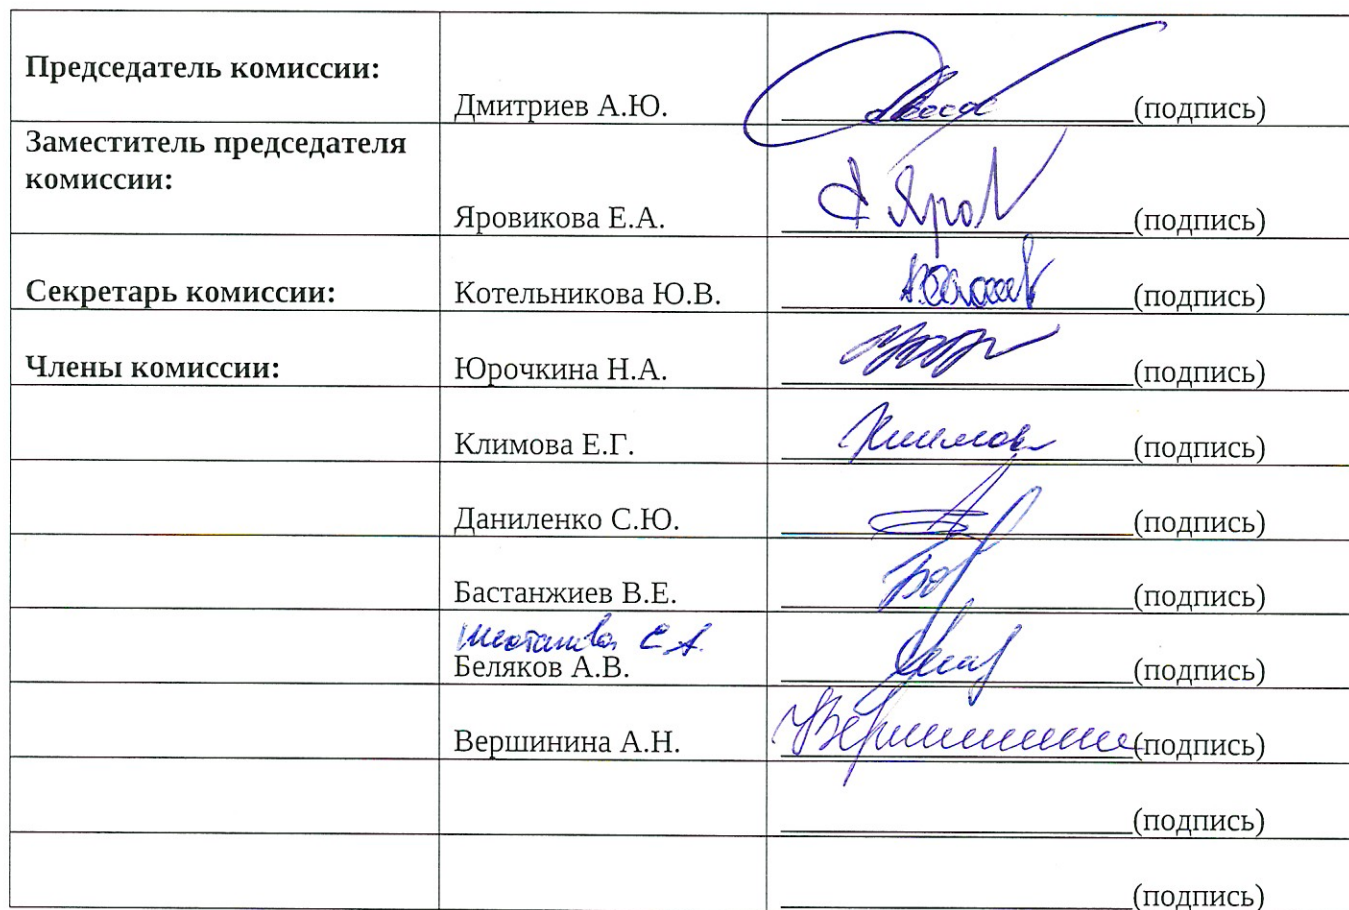 Председатель комиссии:
Дмитриев А.Ю. (подпись)
Заместитель председателя
комиссии:
Яровикова Е.А. (подпись)
Секретарь комиссии: Котельникова Ю.В. (подпись)
Члены комиссии: Юрочкина Н.А. (подпись)
Климова Е.Г. (подпись)
Даниленко С.Ю. (подпись)
Бастанжиев В.Е. (подпись)
С.А.
Беляков А.В. (подпись)
Вершинина А.Н. (подпись)
(подпись)
(подпись)